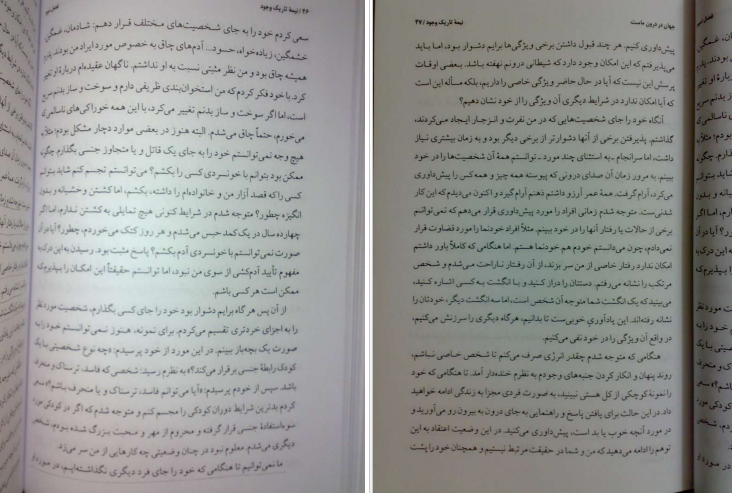 ۴۶ / نیمهٔ تاریک وجود
سعی کردم خود را به جای شخصیت‌های مختلف قرار دهم: شادمان، غمگین،
خشمگین، زیاده‌خواه، حسود... آدم‌های چاق به خصوص مورد ایراد من بودند. پدرم
همیشه چاق بود و من نظر مثبتی نسبت به او نداشتم. ناگهان عقیده‌ام دربارهٔ او تغییر
کرد. با خود فکر کردم که من استخوان‌بندی ظریفی دارم و سوخت و ساز بدنم سریع
است، اما اگر سوخت و ساز بدنم تغییر می‌کرد، با این همه خوراکی‌های ناسالمی که
می‌خورم، حتماً چاق می‌شدم. البته هنوز در بعضی موارد دچار مشکل بودم؛ مثلاً، به
هیچ وجه نمی‌توانستم خود را به جای یک قاتل و یا متجاوز جنسی بگذارم. چگونه
ممکن بود بتوانم با خونسردی کسی را بکشم؟ می‌توانستم تجسم کنم شاید بتوانم
کسی را که قصد آزار من و خانواده‌ام را داشته، بکشم، اما کشتن وحشیانه و بدون
انگیزه چطور؟ متوجه شدم در شرایط کنونی هیچ تمایلی به کشتن ندارم، اما اگر
چهارده سال در یک کمد حبس می‌شدم و هر روز کتک می‌خوردم، چطور؟ آیا در آن
صورت نمی‌توانستم با خونسردی آدم بکشم؟ پاسخ مثبت بود. رسیدن به این درک به
مفهوم تأیید آدم‌کشی از سوی من نبود، اما توانستم حقیقتاً این امکان را بپذیرم که
ممکن است هر کسی باشم.
از آن پس هر گاه برایم دشوار بود خود را جای کسی بگذارم، شخصیت مورد نظر
را به اجزای خردتری تقسیم می‌کردم. برای نمونه، هنوز نمی توانستم خود را به
صورت یک بچه‌باز ببینم. در این مورد از خود پرسیدم: «چه نوع شخصیتی با یک
کودک رابطهٔ جنسی برقرار می‌کند؟» به نظرم رسید: شخصی که فاسد، ترسناک و منحرف
باشد. سپس از خودم پرسیدم: «آیا می‌توانم فاسد، ترسناک و یا منحرف باشم؟» سعی
کردم بدترین شرایط دوران کودکی را مجسم کنم و متوجه شدم که اگر در کودکی مورد
سوءاستفادهٔ جنسی قرار گرفته و محروم از مهر و محبت بزرگ شده بودم، شخص
دیگری می‌شدم. معلوم نبود در چنان وضعیتی چه کارهایی از من سر می‌زد.
ما نمی‌توانیم تا هنگامی که خود را جای فرد دیگری نگذاشته‌ایم، در مورد او
جهان در درون ماست
نیمهٔ تاریک وجود / ۴۷
پیش‌داوری کنیم. هر چند قبول داشتن برخی ویژگی‌ها برایم دشوار بود، اما باید
می‌پذیرفتم که این امکان وجود دارد که شیطانی درونم نهفته باشد. بعضی اوقات
پرسش این نیست که آیا در حال حاضر ویژگی خاصی را داریم، بلکه مسأله این است
که آیا امکان ندارد در شرایط دیگری آن ویژگی را از خود نشان دهیم؟
آنگاه خود را جای شخصیت‌هایی که در من نفرت و انزجار ایجاد می‌کردند،
گذاشتم. پذیرفتن برخی از آنها دشوارتر از برخی دیگر بود و به زمان بیشتری نیاز
داشت، اما سرانجام ـ به استثنای چند مورد ـ توانستم همهٔ آن شخصیت‌ها را در خود
ببینم. به مرور زمان آن صدای درونی که پیوسته همه چیز و همه کس را پیش‌داوری
می‌کرد، آرام گرفت. همهٔ عمر آرزو داشتم ذهنم آرام گیرد و اکنون می‌دیدم که این کار
شدنی‌ست. متوجه شدم زمانی افراد را مورد پیش‌داوری قرار می‌دهم که نمی‌توانم
برخی از حالات یا رفتار آنها را در خود ببینم. مثلاً افراد خودنما را مورد قضاوت قرار
نمی‌دادم، چون می‌دانستم خودم هم خودنما هستم. اما هنگامی که کاملاً باور داشتم
امکان ندارد رفتار خاصی از من سر بزند، از آن رفتار ناراحت می‌شدم و شخص
مرتکب را نشانه می‌رفتم. دستتان را دراز کنید، و با انگشت به کسی اشاره کنید،
می‌بینید که یک انگشت شما متوجه آن شخص است، اما سه انگشت دیگر، خودتان را
نشانه رفته‌اند. این یادآوری خوبی‌ست تا بدانیم، هرگاه دیگری را سرزنش می‌کنیم،
در واقع آن ویژگی را در خود نفی می‌کنیم.
هنگامی که متوجه شدم چقدر انرژی صرف می‌کنم تا شخص خاصی نباشم،
روند پنهان و انکار کردن جنبه‌های وجودم به نظرم خنده‌دار آمد. تا هنگامی که خود
را نمونهٔ کوچکی از کل هستی نبینید، به صورت فردی مجزا به زندگی ادامه خواهید
داد. در این حالت برای یافتن پاسخ و راهنمایی به جای درون به بیرون رو می‌آورید و
در مورد آنچه خوب یا بد است، پیش‌داوری می‌کنید. در این وضعیت اعتقاد به این
توهم را ادامه می‌دهید که من و شما در حقیقت مرتبط نیستیم و همچنان خود را پشت